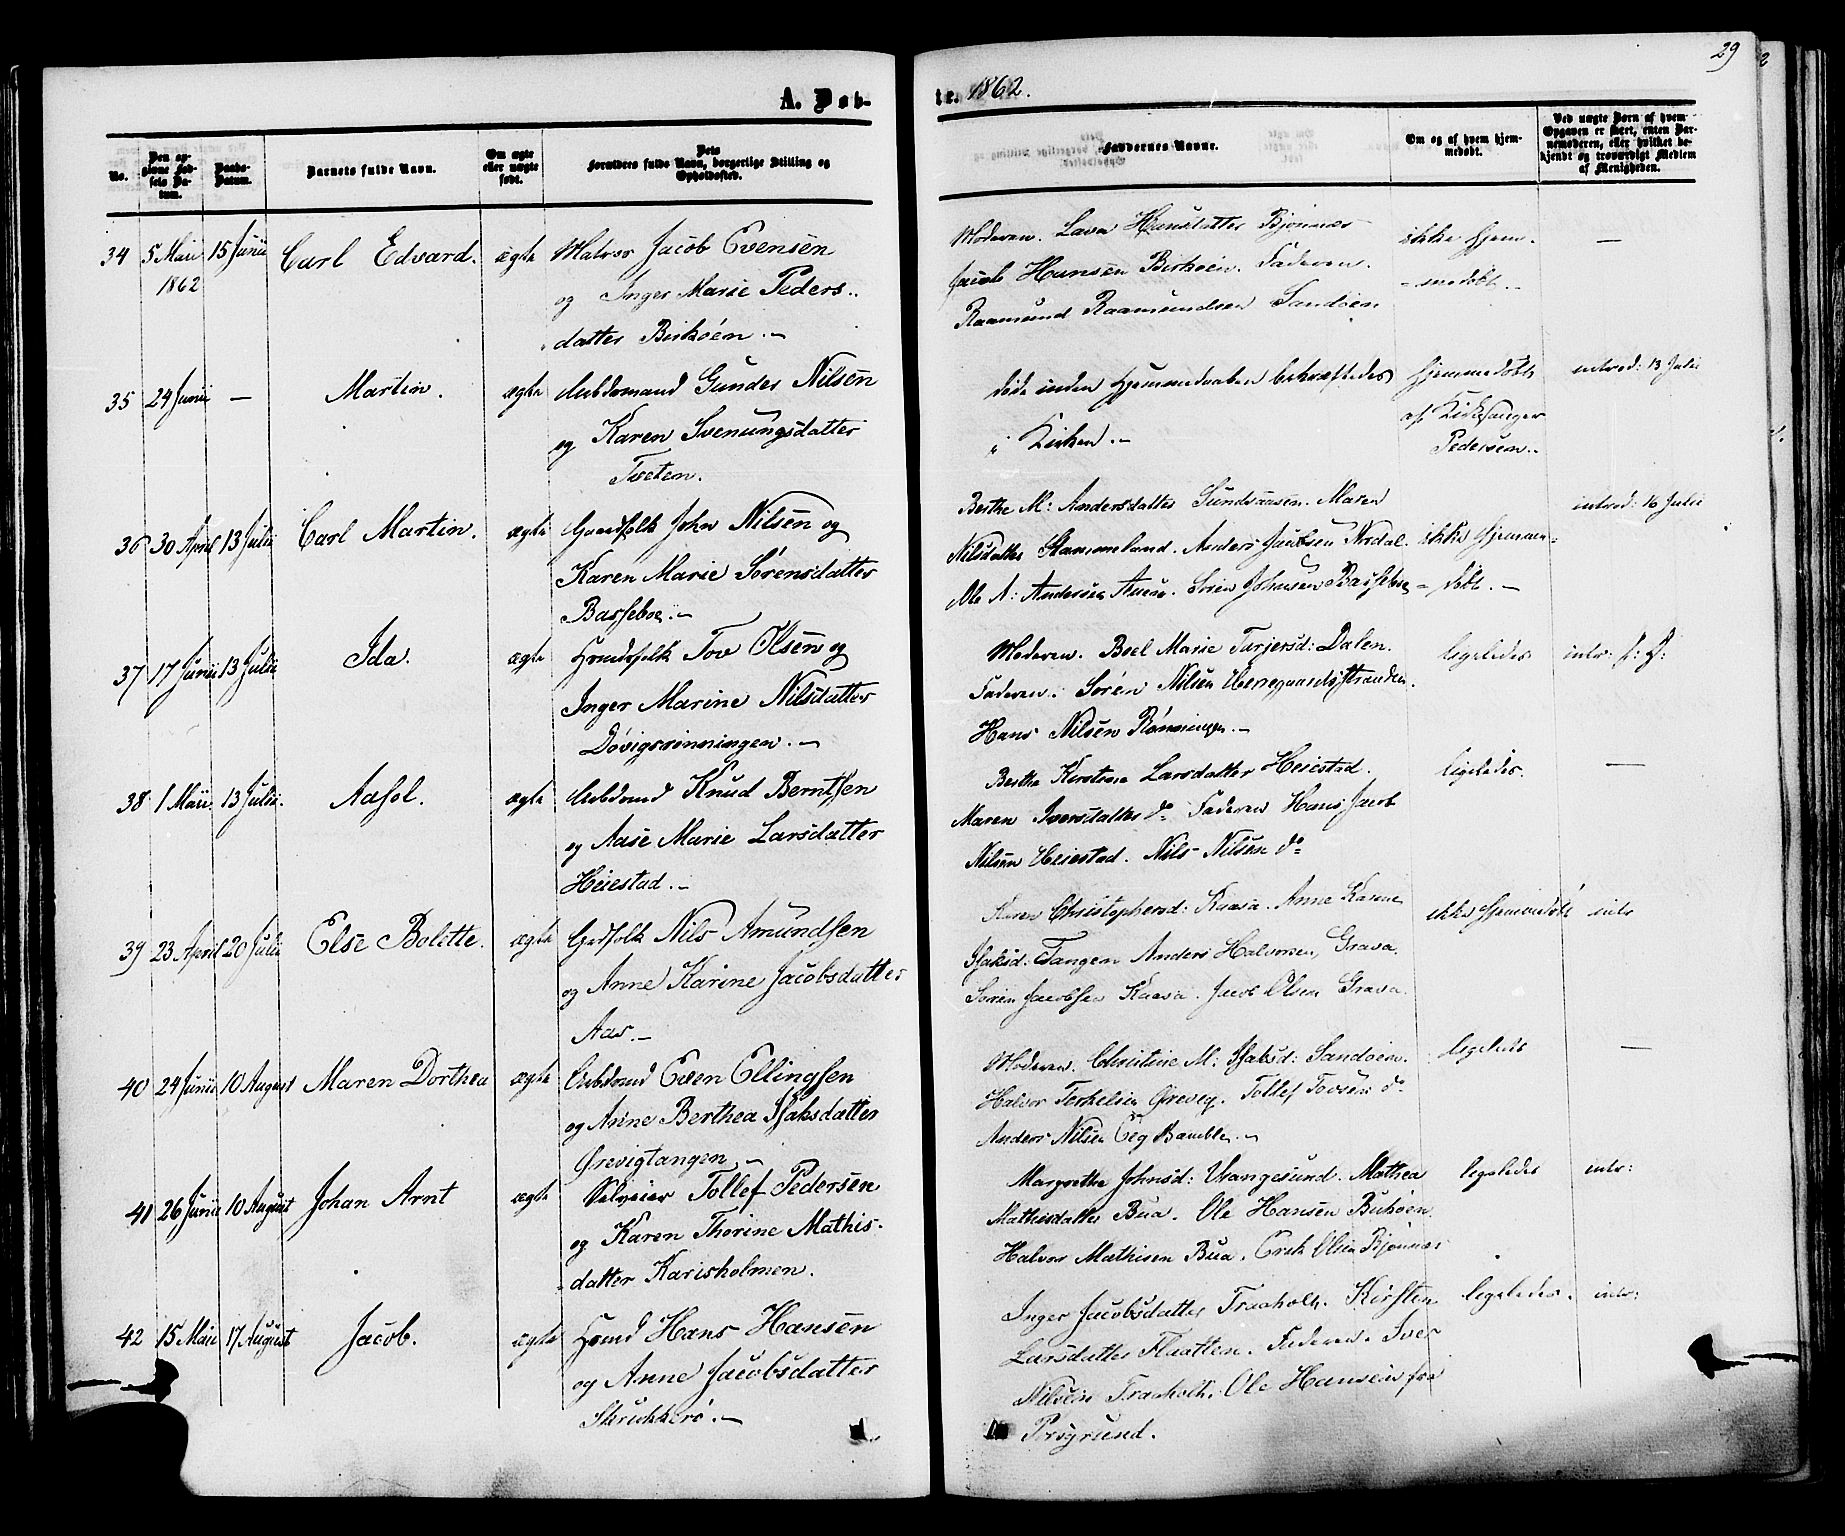 29
A. Døb-
te. 1862.
No.
Den op-
givne Fød-
sels Da-
tum.
Daabs-
Datum.
Barnets fulde Navn.
Om ægte
eller uægte
født.
Dets
Forældres fulde Navn, borgerlige Stilling og
Opholdssted.
Faddernes Navne.
Om og af hvem hjem-
medøbt.
Ved uægte Børn af hvem
Opgaven er skeet, enten Bar-
nemoderen, eller hvilket be-
kjendt og troværdigt Medlem
af Menigheden.
34 5 Mai 1862 15 Junii Carl Edvard. ægte Matros Jacob Evensen
og Inger Marie Peders-
datter Birkøen. —
Moderen. Lava Hansdatter Bjønnæs
Jacob Hansen Birkøen. Faderen.
Raamund Raamundsen Sandøen
ikke hjem-
medøbt. —
35 24 Junii — Martin. ægte Arbdsmand Gunder Nilsen
og Karen Svenungsdatter
Tveten.
døde inden Hjemmedaaben bekræftedes
i Kirken. —
hjemmedøbt
af Kirkesanger
Pedersen.
introd: 13 Julii
36 30 April 13 Julii Carl Martin. ægte Gaardfolk John Nilsen og
Karen Marie Sørensdatter
Basseboe. —
Berthe M: Andersdatter Maren
Nilsdatter Stammeland. Anders Jacobsen
Ole A: Andersen Sørен Johnsen Basseboe
ikke hjemme-
døbt. —
introd: 16 Julii
37 17 Junii 13 Julii Ida. ægte Huusfolk Tov Olsen og
Inger Marine Nilsdatter
Døvigsrønningen. —
Moderen. Boel Marie Turjersd: Dalen.
Faderen. Søren Nilsen Herregaardsstranden.
Hans Nilsen Rønningen. —
ligeledes
intr: s: D:
38 1 Maii 13 Julii. Aasol. ægte Arbdsmd Knud Berntsen
og Aase Marie Larsdatter
Heiestad. —
Berthe Kirstine Larsdatter Heiestad.
Maren Iversdatter do Faderen Hans Jacob
Nilsen Heiestad. Nils Nilsen do
ligeledes.
39 23 April 20 Julii Else Bolette. ægte Grdfolk Nils Amundsen
og Anne Karine Jacobsdatter
Aas. —
Karen Christophersd: Kaasa. Anne Karine
Isaksd: Tangen Anders Halvorsen, Grava.
Søren Jacobsen Kaasa. Jacob Olsen Grava.
ikke hjemmedøbt
intr
40 24 Junii 10 August Maren Dorthea ægte Arbdsmd Even Ellingsen
og Anne Berthea Isaksdatter
Ørevigtangen —
Moderen. Christine M: Isaksd: Sandøen.
Halvor Terkelsen Ørevig. Tollef Tovsen do
Anders Nilsen Eeg Bamble. —
ligeledes
41 26 Junii 10 August Johan Arnt ægte Tollef Pedersen
og Karen Thorine Mathis-
datter Karisholmen.
Margrethe Johnsd: Vrangesund. Mathea
Mathisdatter Bua. Ole Hansen Birkøen
Halvor Mathisen Bua. Erik Olsen Bjønnæs
ligeledes
intr:
42 15 Maii 17 August Jacob. ægte Huusmd Hans Hansen
og Anne Jacobsdatter
Skrukkerø. —
Inger Jacobsdatter Traaholt. Kirsten
Larsdatter Flaatten. Faderen. Iver
Nilsen Traaholt. Ole Hansen fra
Porsgrund.
ligeledes.
intr: